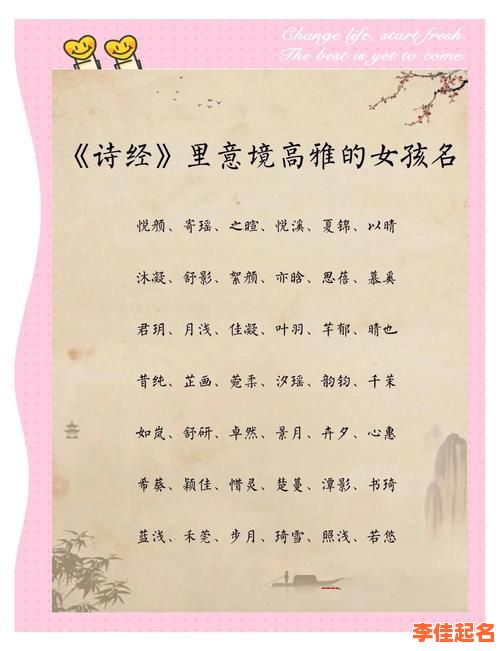 Change life, start fresh.
The best is yet to come.
《诗经》里意境高雅的女孩名
悦颜、寄瑶、之暄、悦溪、夏锦、以晴
沐凝、舒影、絮颜、亦晗、思蓓、慕奚
君玥、月浅、佳凝、叶羽、芊郁、晴也
昔纯、芷画、菀柔、汐瑶、韵钧、千茉
如岚、舒研、卓然、景月、卉夕、心惠
希葵、颖佳、惜灵、楚蔓、潭影、书琦
蓝浅、禾莞、步月、琦雪、照浅、若悠
李佳起名